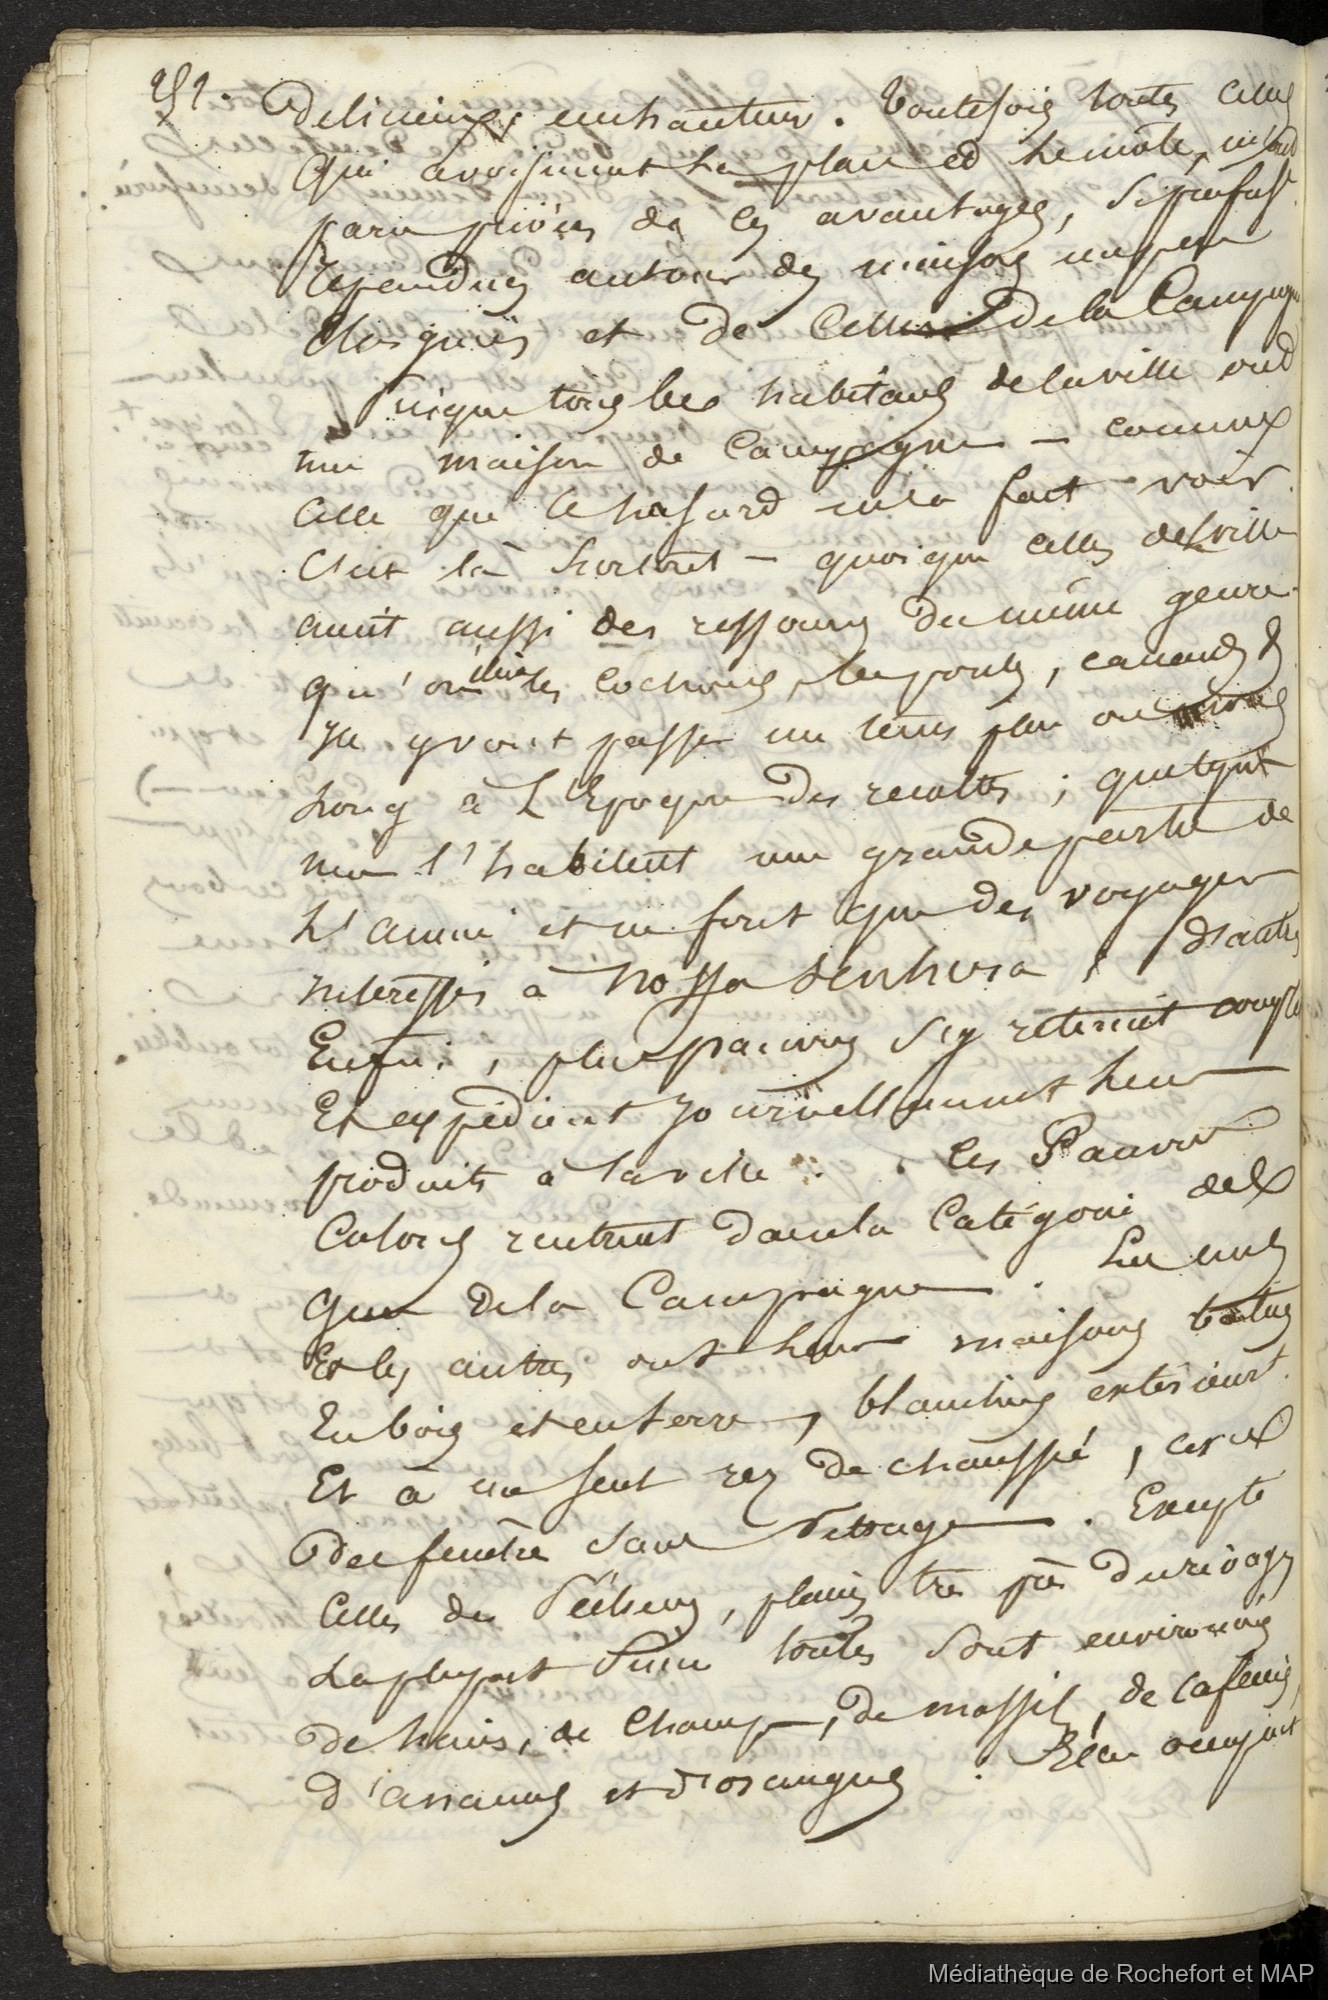 251.
Delicieux, enchanteur. Toutefois toutes celles
Qui avoisinent la place et le môle, n'ont
privées de ces avantages, si
Repandues autour des maisons un peu
Eloignées et de Celles De la Campagne
Presque tous les habitans de la ville ont
une maison de Campagne — comme
Celle que le hasard m'a fait voir.
C'est là surtout — quoique celles de la ville
aient aussi des ressources Du même genre.
qu'on élève les cochons, les poules, canards &
Ils y vont passer un tems plus ou moins
Long à L'Epoque Des recoltes ; quelques
uns l'habitent une grande partie de
L'année et ne font que des voyages
interessés à Nossa Senhora ; D'autres
Enfin, plus pauvres s'y retirent
Et expédient Journellement leurs
produits à la ville. Les Pauvres
Colons rentrent Dans la Catégorie de
Ceux De la Campagne. Les uns
Et les autres ont leurs maisons baties
En bois et en terre, blanchies exterieurt.
Et à un seul rez De chaussée, avec
Des fenêtres Sans Vitrage. Excepté
Celles des Pêcheurs, placées très près Du rivage
La plupart toutes Sont environnées
De haies, de Champs, De massifs, de Cafeiers,
D'ananas et D'orangers. Bien
Médiathèque de Rochefort et MAP